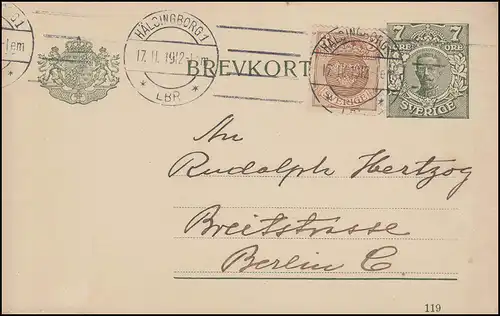 HÄLSINGBORG 1
17.11.1912-1em
LBR
BREVKORT
HÄLSINGBORG 1
17.11.1912-1em
LBR
SVERIGE
7 7
ÖRE ÖRE
SVERIGE
An
Rudolph Hertzog
Breitstrasse
Berlin C
119